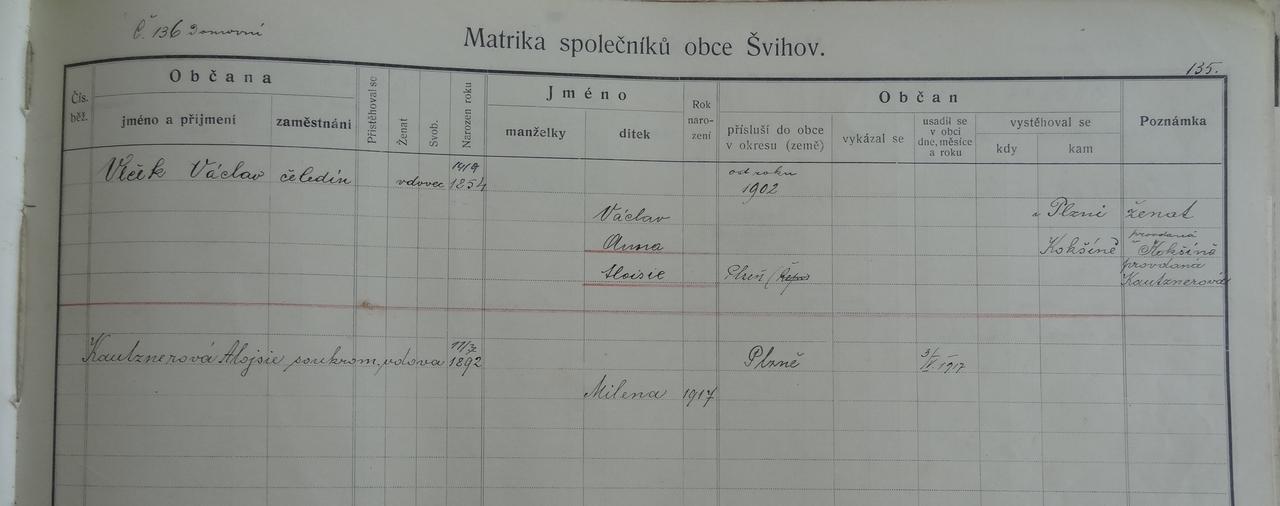 Č. 136 Domovní
Matrika společníků obce Švihov.
135.
Čís. běž.
Občana
jméno a příjmení
zaměstnání
Přistěhoval se
Ženat
Svob.
Narozen roku
Jméno
manželky
ditek
Rok naro- zení
Občan
přísluší do obce v okresu (země)
vykázal se
usadil se v obci dne, měsíce a roku
vystěhoval se
kdy
kam
Poznámka
Vlček Václav čeledín vdovec 14/9 1854 od roku 1902
Václav Plzni ženat
Anna Kokšíně provdaná Kokšíně
Aloisie Plzeň provdaná Kautznerová
Kautznerová Alojsie soukrom. vdova 1892 Plzně 1917
Milena 1917